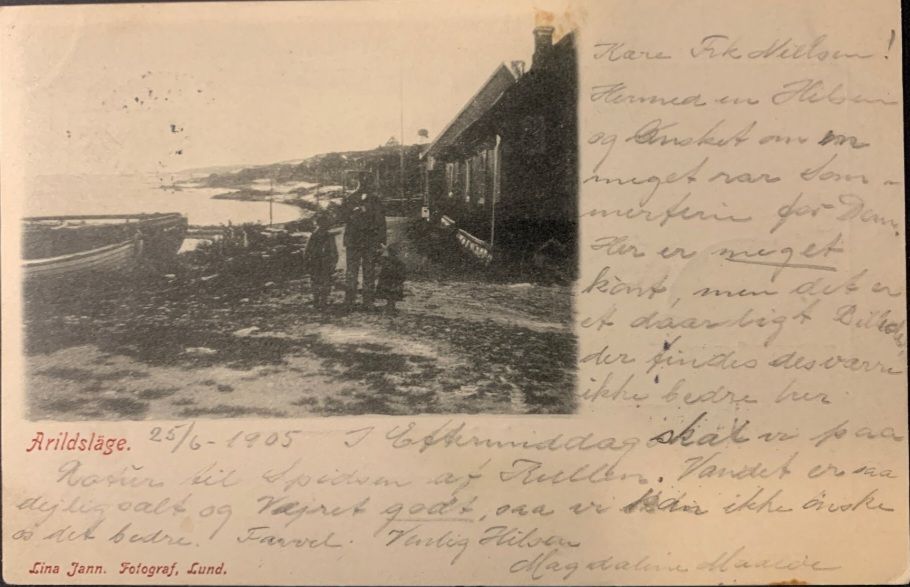 Kære Frk Nielsen!
Hermed en Hilsen
og Ønsket om en
meget rar Som-
merferie for Dem.
Her er meget
kønt, men det er
et daarligt Billede
der findes desværre
ikke bedre her.
Arildsläge.
25/6-1905 I Eftermiddag skal vi paa
til Spidsen af Kullen. Vandet er saa
dejlig salt og Vejret godt, saa vi kan ikke ønske
os det bedre. Farvel. Venlig Hilsen
Magdaline
Lina Jann. Fotograf, Lund.